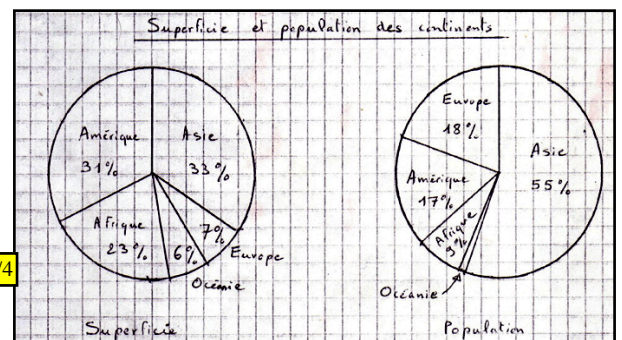 Superficie et population des continents
Amérique
31%
Asie
33%
Afrique
23%
6%
7%
Europe
Océanie
Superficie
Europe
18%
Asie
55%
Amérique
17%
Afrique
9%
Océanie
Population
/4